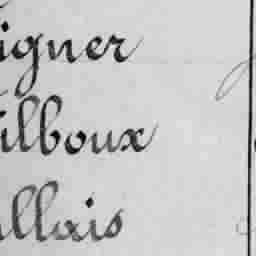 igner
ilboux
illais